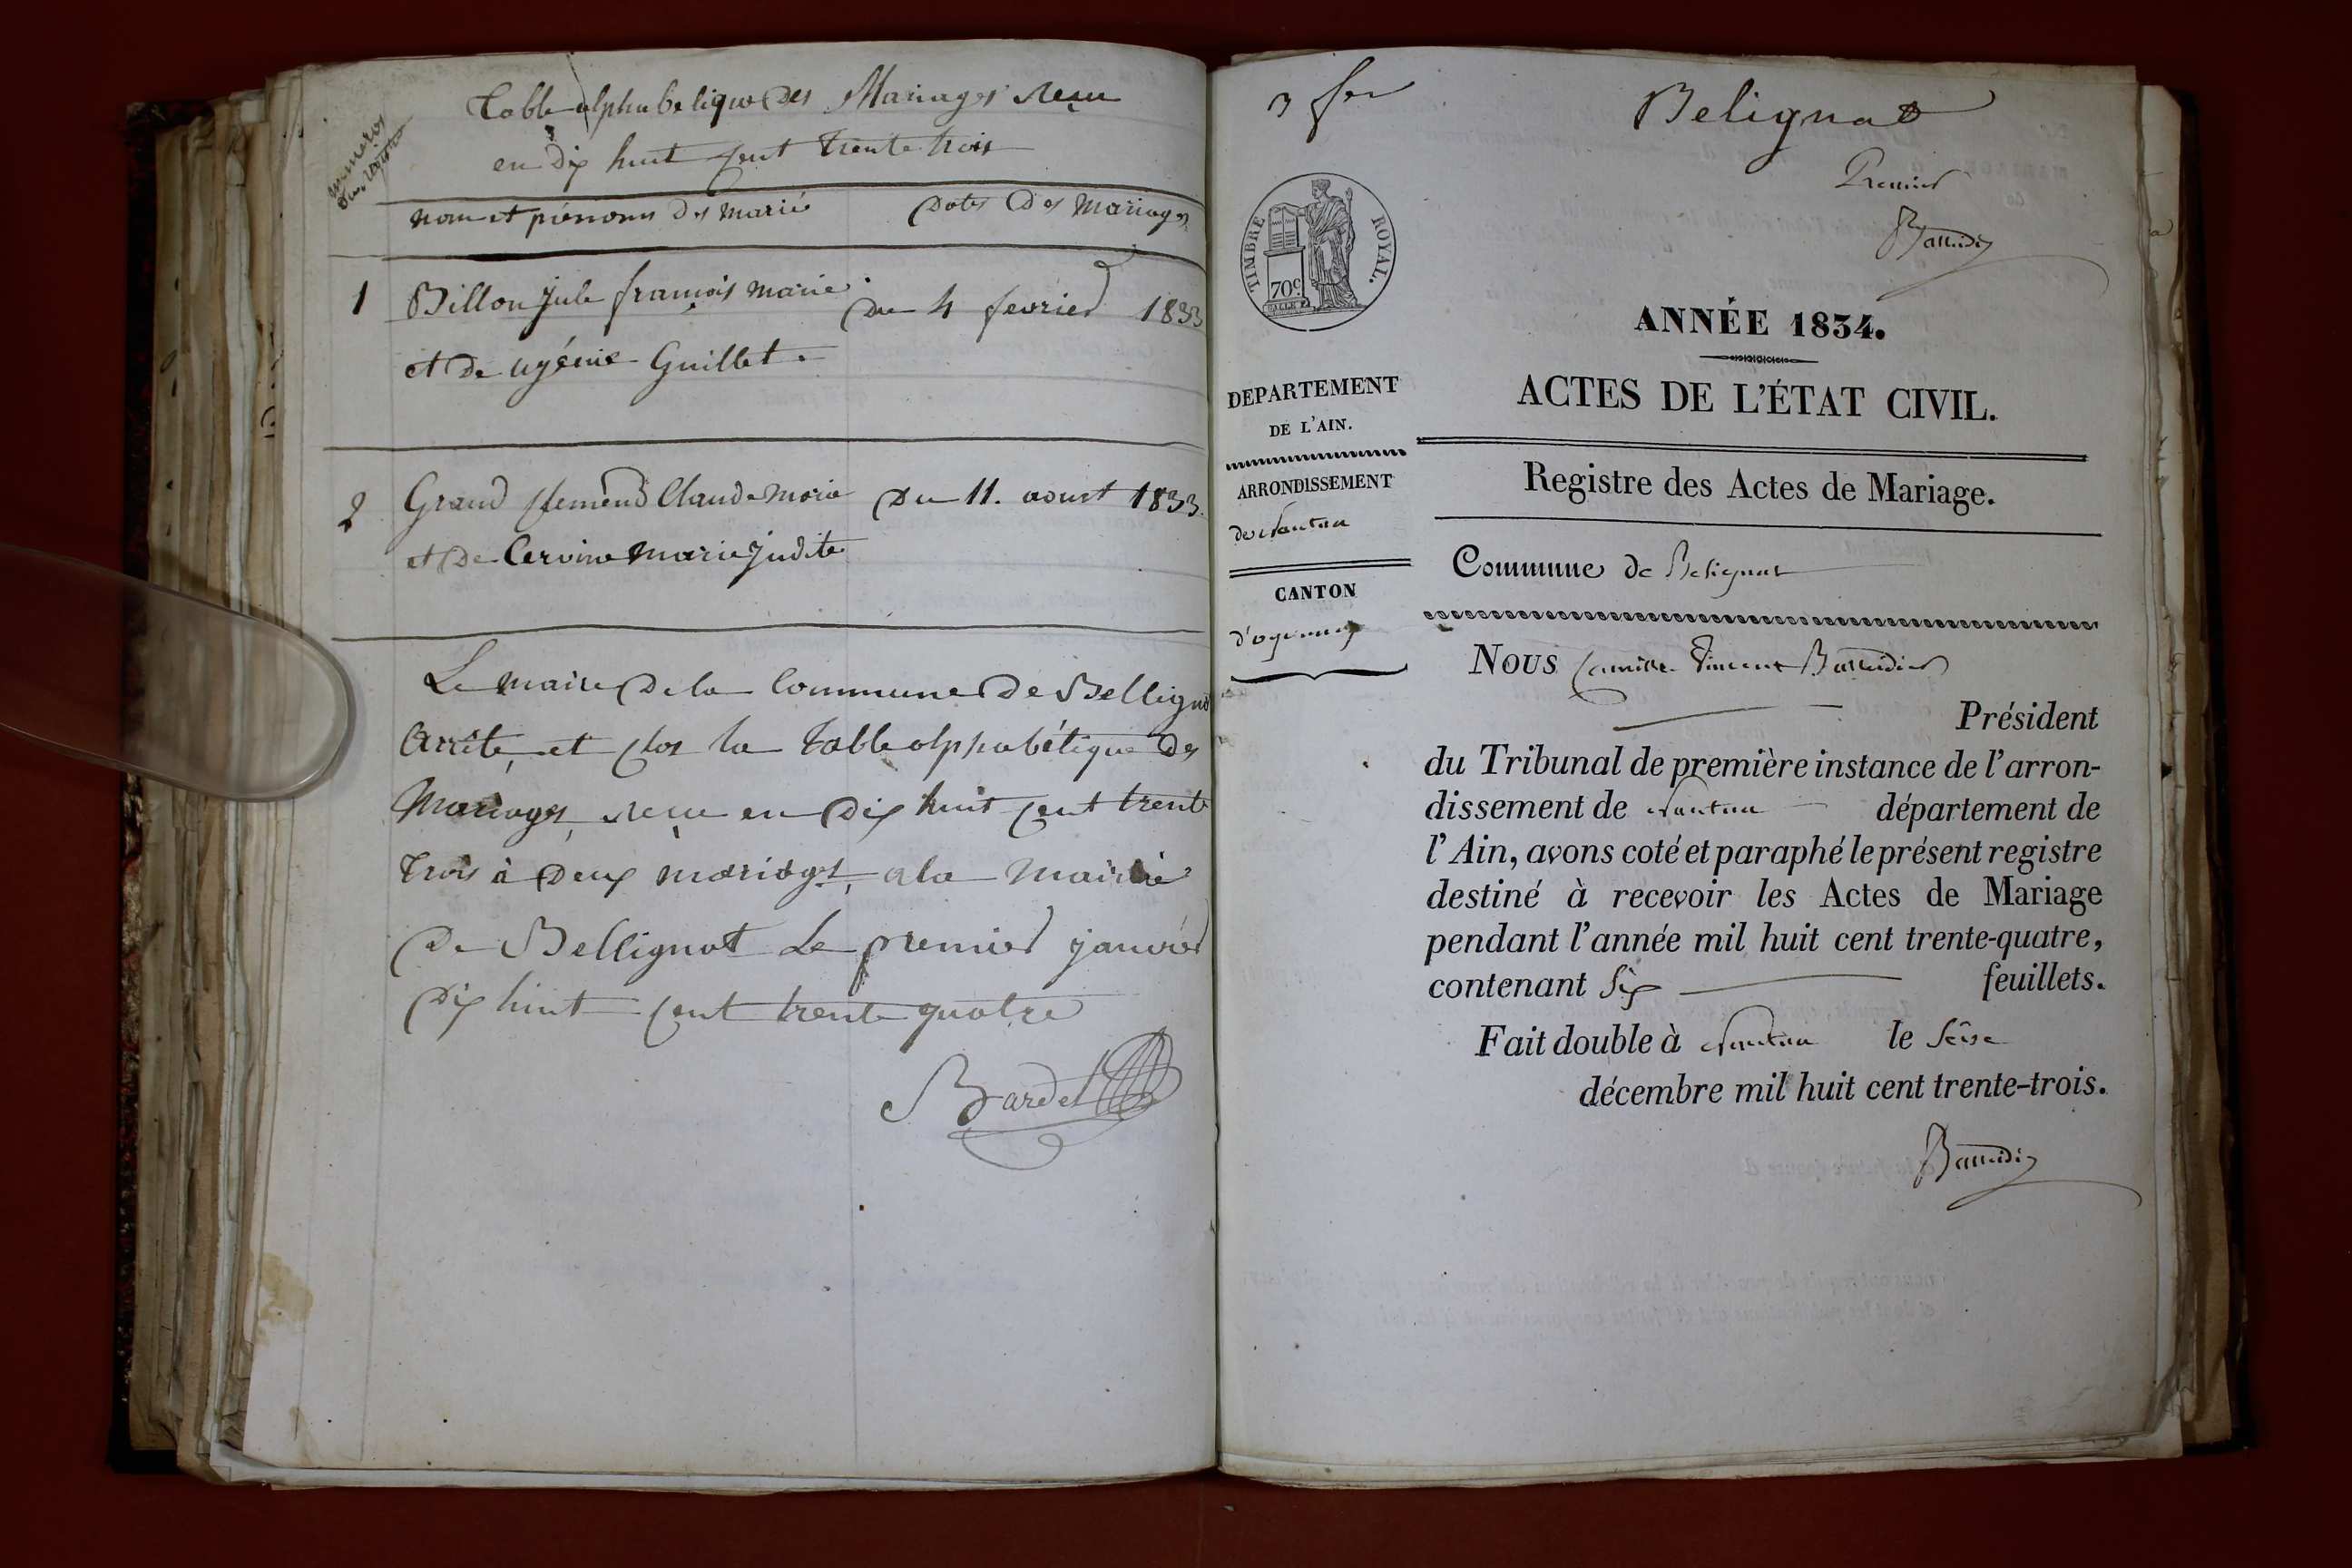 numeros
Table alphabetique des Mariages reçu
en dix huit cent trente trois
nom et prénoms des marié
Dates des Mariages
1 Billon jule françois marie du 4 fevrier 1833
et de ugénie Guillet.
2 Grand Claude Marie du 11. aoust 1833.
et de Cervine Marie judite
Le maire de la Commune de Bellignat
arrête, et clos la table alphabétique des
Mariages, reçu en dix huit cent trente
trois à deux mariages, a la Mairie
de Bellignat Le premier janvier
dix huit cent trente quatre
Bardet
Belignat
Premier
TIMBRE ROYAL.
70c.
ANNÉE 1834.
ACTES DE L'ÉTAT CIVIL.
DEPARTEMENT
DE L'AIN.
ARRONDISSEMENT
de Nantua
CANTON
d'oyonnax
Registre des Actes de Mariage.
Commune de Belignat
Nous Camille Vincent
Président
du Tribunal de première instance de l'arron-
dissement de Nantua département de
l'Ain, avons coté et paraphé le présent registre
destiné à recevoir les Actes de Mariage
pendant l'année mil huit cent trente-quatre,
contenant Six feuillets.
Fait double à Nantua le Seise
décembre mil huit cent trente-trois.